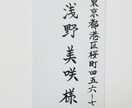 東京都港区桜町四五六-七
浅野美咲様